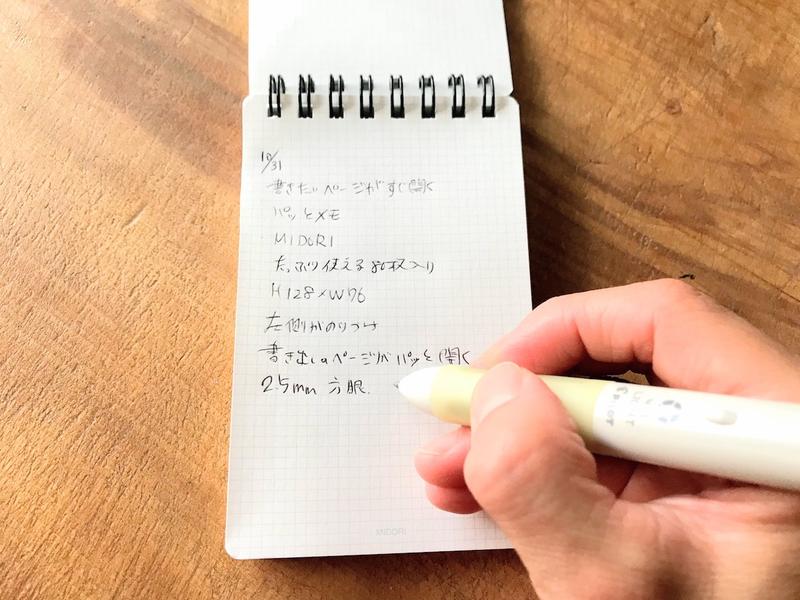 10/31
書きたいページがすぐ開く
パッとメモ
MIDORI
たっぷり使える80枚入り
H128×W76
左側がのりつけ
書き出しのページがパッと開く
2.5mm 方眼
MIDORI
PILOT